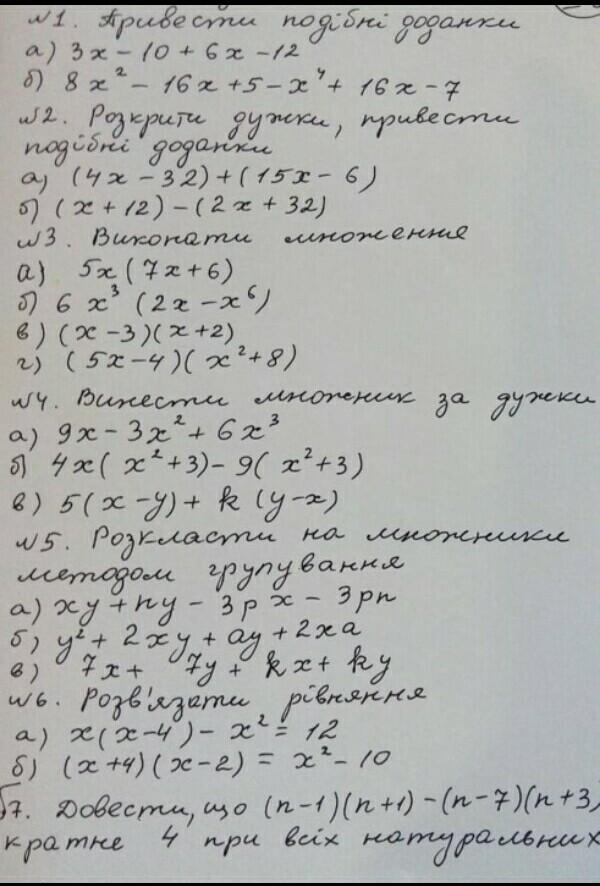 №1. Привести подібні доданки
а) 3x - 10 + 6x - 12
б) 8x² - 16x + 5 - x⁴ + 16x - 7
№2. Розкрити дужки, привести
подібні доданки
а) (4x - 32) + (15x - 6)
б) (x + 12) - (2x + 32)
№3. Виконати множення
а) 5x(7x + 6)
б) 6x³(2x - x⁶)
в) (x - 3)(x + 2)
г) (5x - 4)(x² + 8)
№4. Винести множник за дужки
а) 9x - 3x² + 6x³
б) 4x(x² + 3) - 9(x² + 3)
в) 5(x - y) + k(y - x)
№5. Розкласти на множники
методом групування
а) xy + ny - 3px - 3pn
б) y² + 2xy + ay + 2xa
в) 7x + 7y + kx + ky
№6. Розв'язати рівняння
а) x(x - 4) - x² = 12
б) (x + 4)(x - 2) = x² - 10
7. Довести, що (n - 1)(n + 1) - (n - 7)(n + 3)
кратне 4 при всіх натуральних